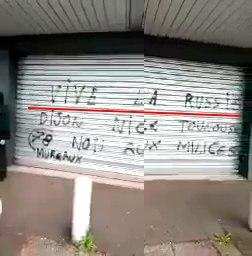 VIVE LA RUSSIE
DIJON NICE TOULOUSE
78 NON AUX MILICES
MUREAUX